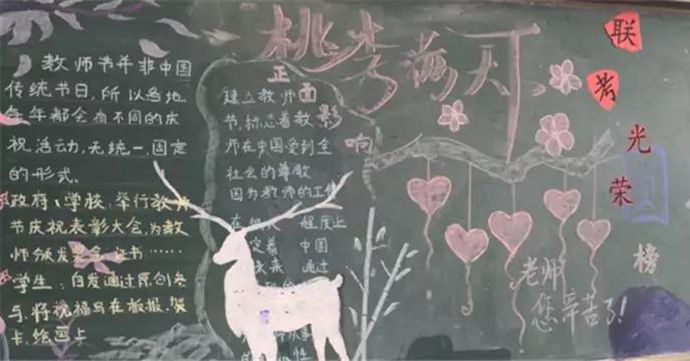 桃李满天下
教师节并非中国
传统节日,所以各地
每年都会有不同的庆
祝活动,无统一,固定
的形式.
政府、学校,举行教师
节庆祝表彰大会,为教
师颁发奖金、证书……
学生:自发通过原创
将祝福写在板报、贺
卡、绘画上
正面影响
建立教师
节,标志着教
师在中国受到全
社会的尊敬
因为教师的工作
在 程度上
定着 中国
未来 通过
联考
光荣
榜
老师
您辛苦了!